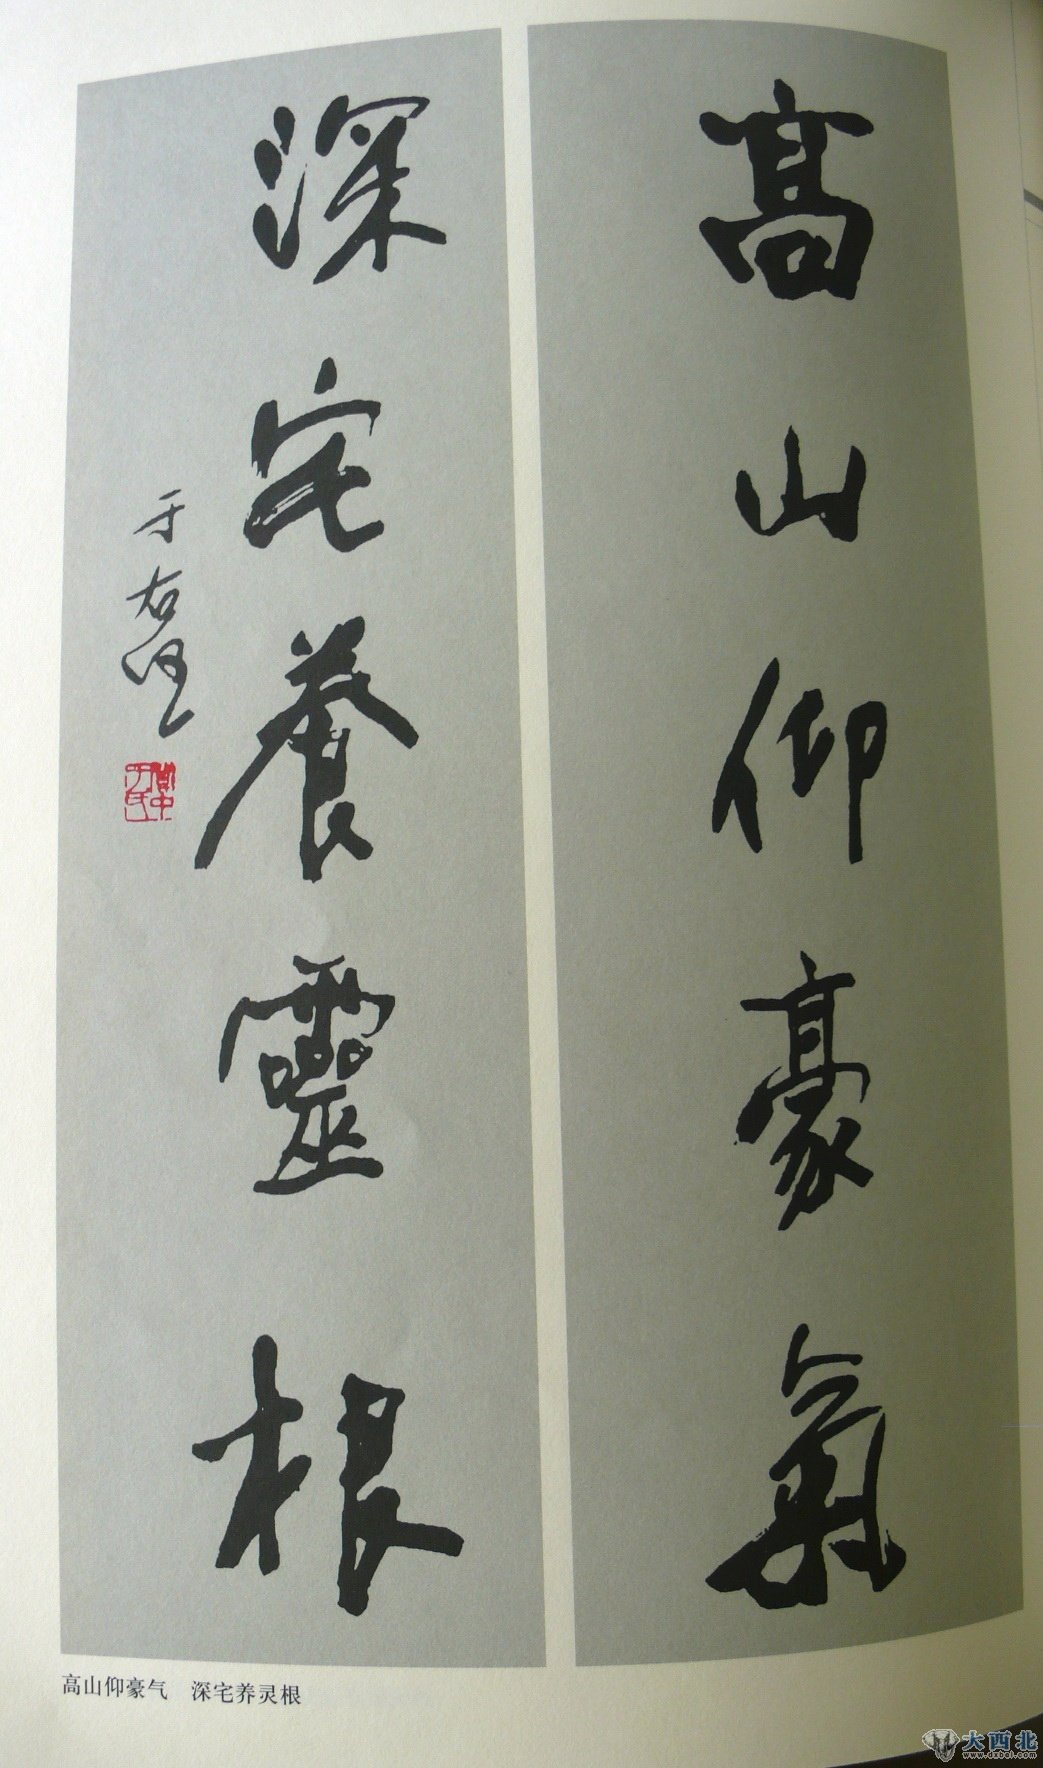 高山仰豪氣
深宅養靈根
于右任
高山仰豪气　深宅养灵根
大西北
www.dxbei.com